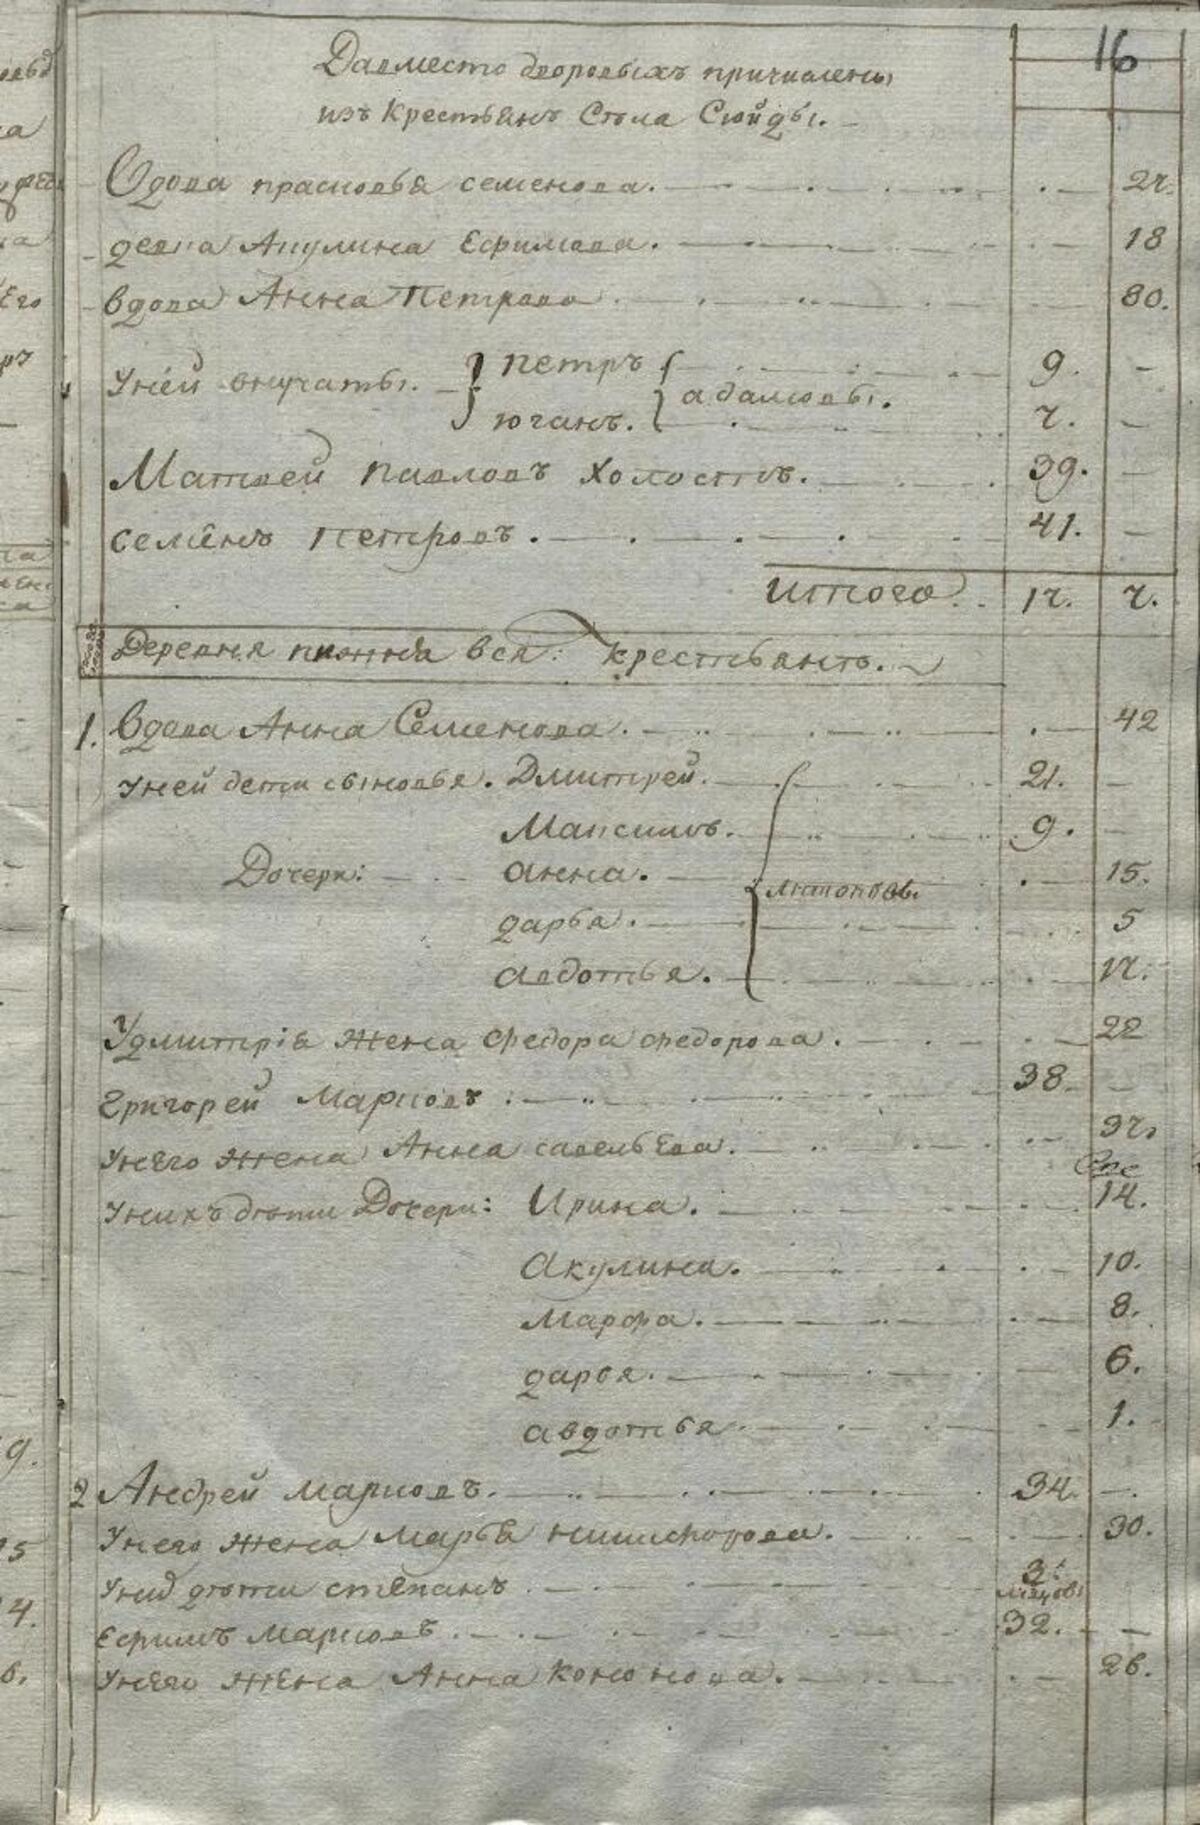 16
Da вместо дворовыхъ причислены
изъ крестьянъ Села Сюйды.
Вдова прасковья семенова. 27.
девка Акулина Ефимова. 18
вдова Анна Петрова 80.
Уней внучаты. петръ 9. –
адамовы.
юганъ. 7. –
Матвей павловъ холостъ. 39. –
семёнъ Петровъ. 41. –
итого 17. 7.
Деревня вся: крестьянъ.
1. Вдова Анна Семенова. 42
Уней дети сыновья. Дмитрей. 21. –
Максимъ. 9. –
Дочери: анна. 15.
дарья. 5
авдотья. 17.
Удмитрія жена Федора федорова. 22
Григорей Марковъ 38. –
Унего жена Анна савельева. 37.
Унихъ дѣти Дочери: Ирина. 14.
Акулина. 10.
Марфа. 8.
дарья. 6.
авдотья 1.
2 Андрей марковъ. 34. –.
Унего жена Марья никифорова. 30.
Униx дѣти степанъ 3.
Ефимъ марковъ 32. –
Унего жена Анна кононова. 26.
9.
5
4.
6.